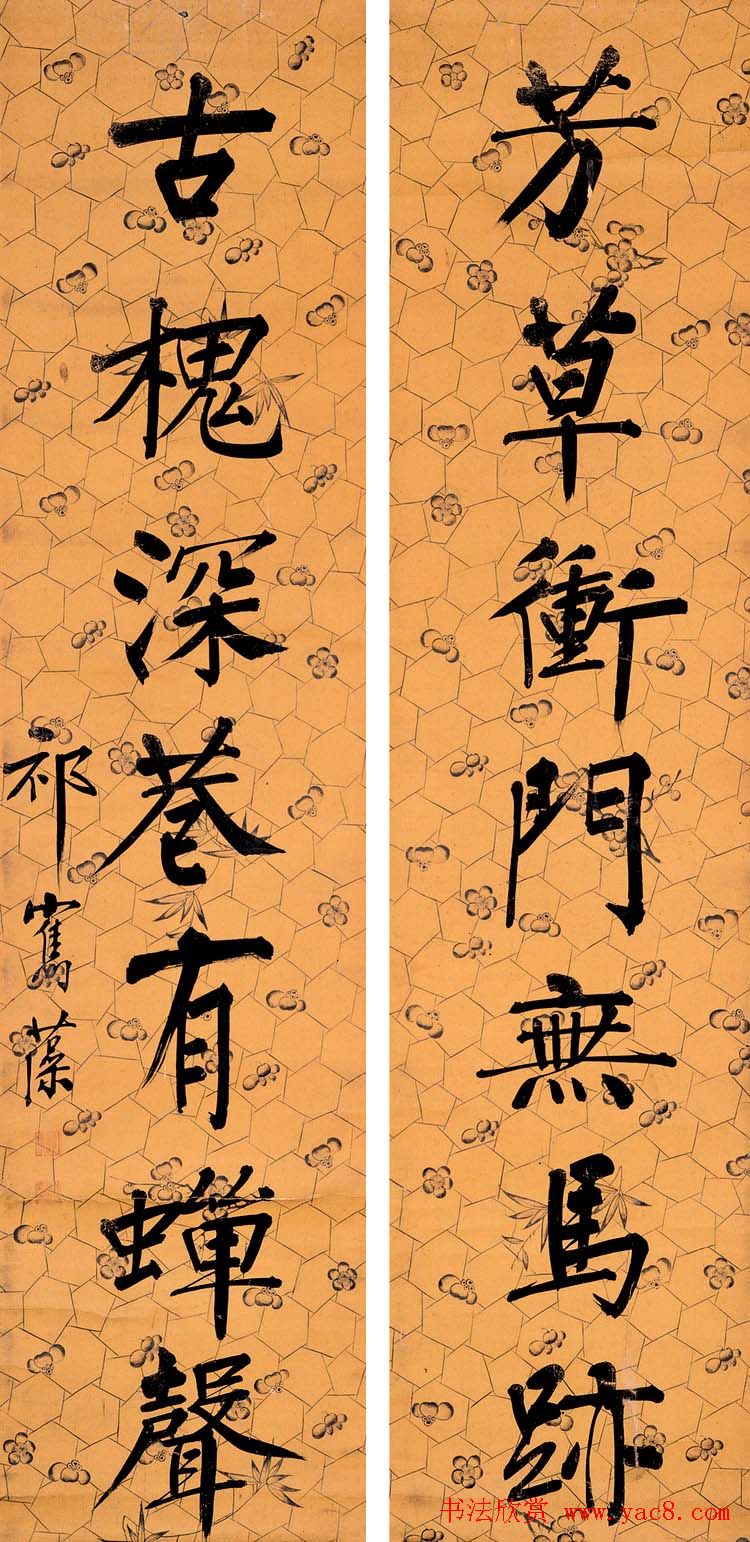 芳草衝門無馬跡
古槐深巷有蟬聲
祁寯藻
书法欣赏 www.yac8.com